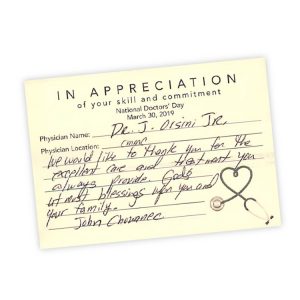 IN APPRECIATION
of your skill and commitment
National Doctors' Day
March 30, 2019
Physician Name: Dr. J. Orsini Jr.
Physician Location: cmmc
We would like to thank you for the
excellent care and treatment you
always provide. Gods
utmost blessings upon you and
your family.
John Chowanec